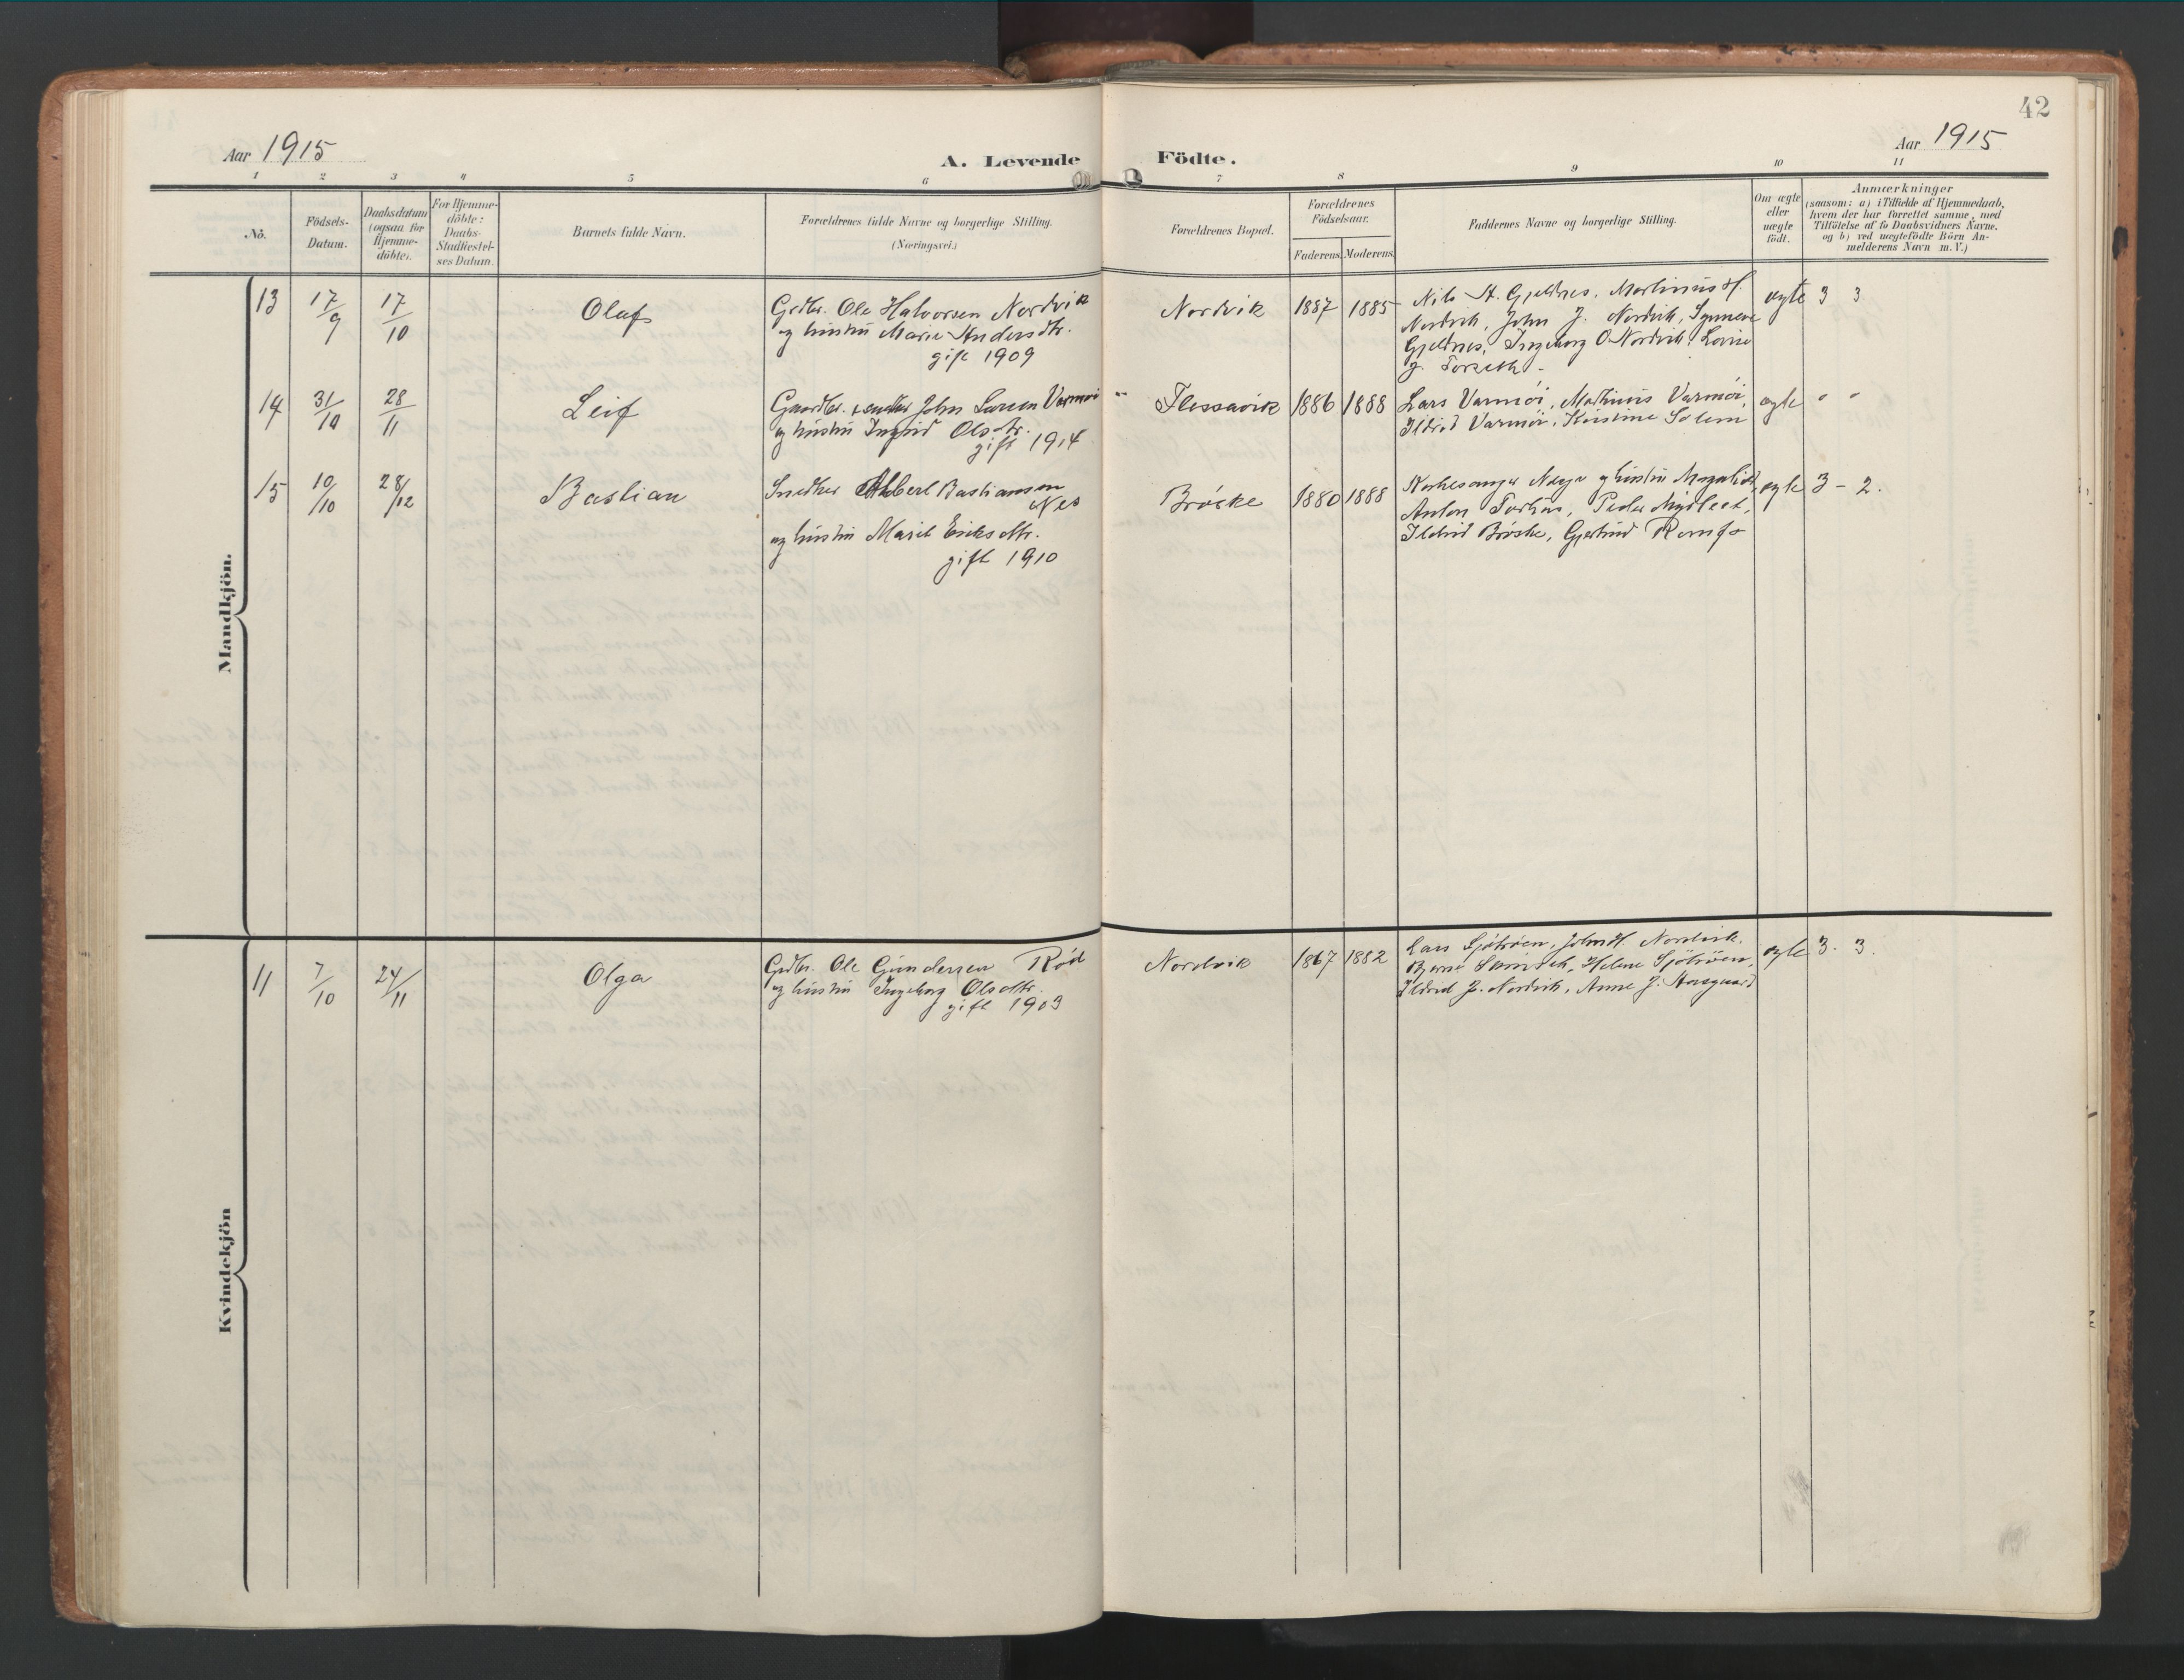 42
Aar 1915
A. Levende Födte.
Aar 1915
1 2 3 4 5 6 7 8 9 10 11
No.
Födsels-
Datum.
Daabsdatum
(ogsaa for
Hjemme-
döbte).
For Hjemme-
döbte:
Daabs-
Stadfæstel-
ses Datum.
Barnets fulde Navn.
Forældrenes fulde Navne og borgerlige Stilling.
(Næringsvei.)
Forældrenes Bopæl.
Forældrenes
Födselsaar.
Faderens. Moderens.
Faddernes Navne og borgerlige Stilling.
Om ægte
eller
uægte
födt.
Anmærkninger
(saasom: a) i Tilfælde af Hjemmedaab,
hvem der har forrettet samme, med
Tilföielse af to Daabsvidners Navne.
og b) ved uægtefödte Börn An-
melderens Navn m. V.)
Mandkjön.
13 17/9 17/10 Olaf
Grdbr. Ole Halvorsen Nordvik
og hustru Marie Andersdtr.
gift 1909
Nordvik 1887 1885
Nils A. Gjeldnes, Martinus H.
Nordvik, John J. Nordvik, Synnøve
Gjeldnes, Ingeborg O. Nordvik,
J. Forseth -
ægte 3 3
14 31/10 28/11 Leif
Gaardbr. John Larsen Varmøi
og hustru Ingrid Olsdtr.
gift 1914
Flessavik 1886 1888
Lars Varmöi, Mathinus Varmöi,
Ildrid Varmöi, Kristine Solem
ægte " "
15 10/10 28/12 Bastian
Snedker Albert Bastiansen
Nes
og hustru Marit Eriksdtr.
gift 1910
Bröske 1880 1888
Kirkesanger og hustru
Anton Peder
Ildrid Bröske, Gjertrud
ægte 3 - 2.
Kvindekjön
11 7/10 24/11 Olga
Grdbr. Ole Gundersen Röd
og hustru Ingeborg Olsdtr.
gift 1903
Nordvik 1867 1882
Lars Sjöbröen, John H. Nordvik.
Helene Sjöbröen,
Ildrid J. Nordvik, Anne J.
ægte 3. 3.